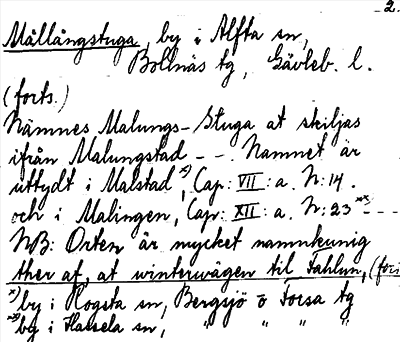 2.
Mållångstuga, by i Alfta sn,
Bollnäs tg, Gävleb. l.
(forts.)
Nämnes Malungs-Stuga at skiljas
ifrån Malungstad - - . Namnet är
uttydt i Malstad x), Cap: VII: a. N: 14.
och i Malingen, Cap: XII: a. N: 23 xx) - - -
NB: Orten är mycket namnkunnig
ther af, at winterwägen til Fahlun, (forts
x) by i Rogsta sn, Bergsjö o Forsa tg
xx) by i Hassela sn, " " " "